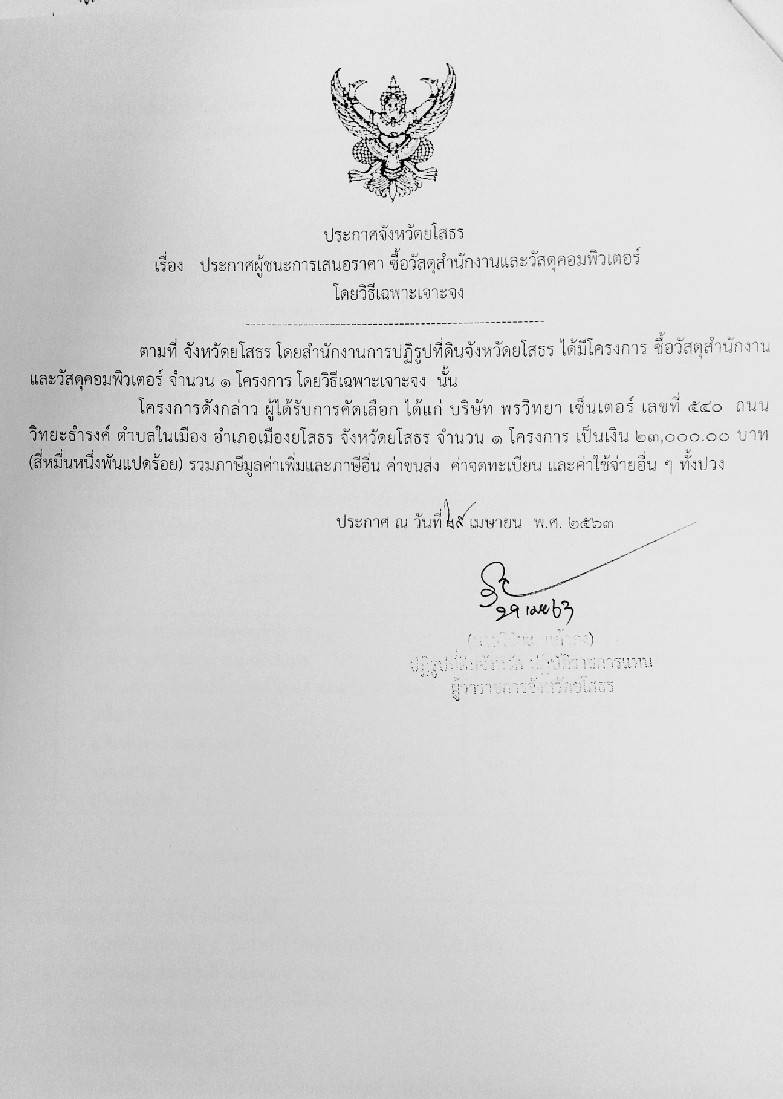 ประกาศจังหวัดยโสธร
เรื่อง ประกาศผู้ชนะการเสนอราคา ซื้อวัสดุสำนักงานและวัสดุคอมพิวเตอร์
โดยวิธีเฉพาะเจาะจง
ตามที่ จังหวัดยโสธร โดยสำนักงานการปฏิรูปที่ดินจังหวัดยโสธร ได้มีโครงการ ซื้อวัสดุสำนักงาน
และวัสดุคอมพิวเตอร์ จำนวน ๑ โครงการ โดยวิธีเฉพาะเจาะจง นั้น
โครงการดังกล่าว ผู้ได้รับการคัดเลือก ได้แก่ บริษัท พรวิทยา เซ็นเตอร์ เลขที่ ๕๔๐ ถนน
วิทยะธำรงค์ ตำบลในเมือง อำเภอเมืองยโสธร จังหวัดยโสธร จำนวน ๑ โครงการ เป็นเงิน ๒๓,๐๐๐.๐๐ บาท
(สี่หมื่นหนึ่งพันแปดร้อย) รวมภาษีมูลค่าเพิ่มและภาษีอื่น ค่าขนส่ง ค่าจดทะเบียน และค่าใช้จ่ายอื่น ๆ ทั้งปวง
ประกาศ ณ วันที่ ๒๙ เมษายน พ.ศ. ๒๕๖๓
29 เมย 63
ปฏิรูปที่ดินจังหวัด ปฏิบัติราชการแทน
ผู้ว่าราชการจังหวัดยโสธร